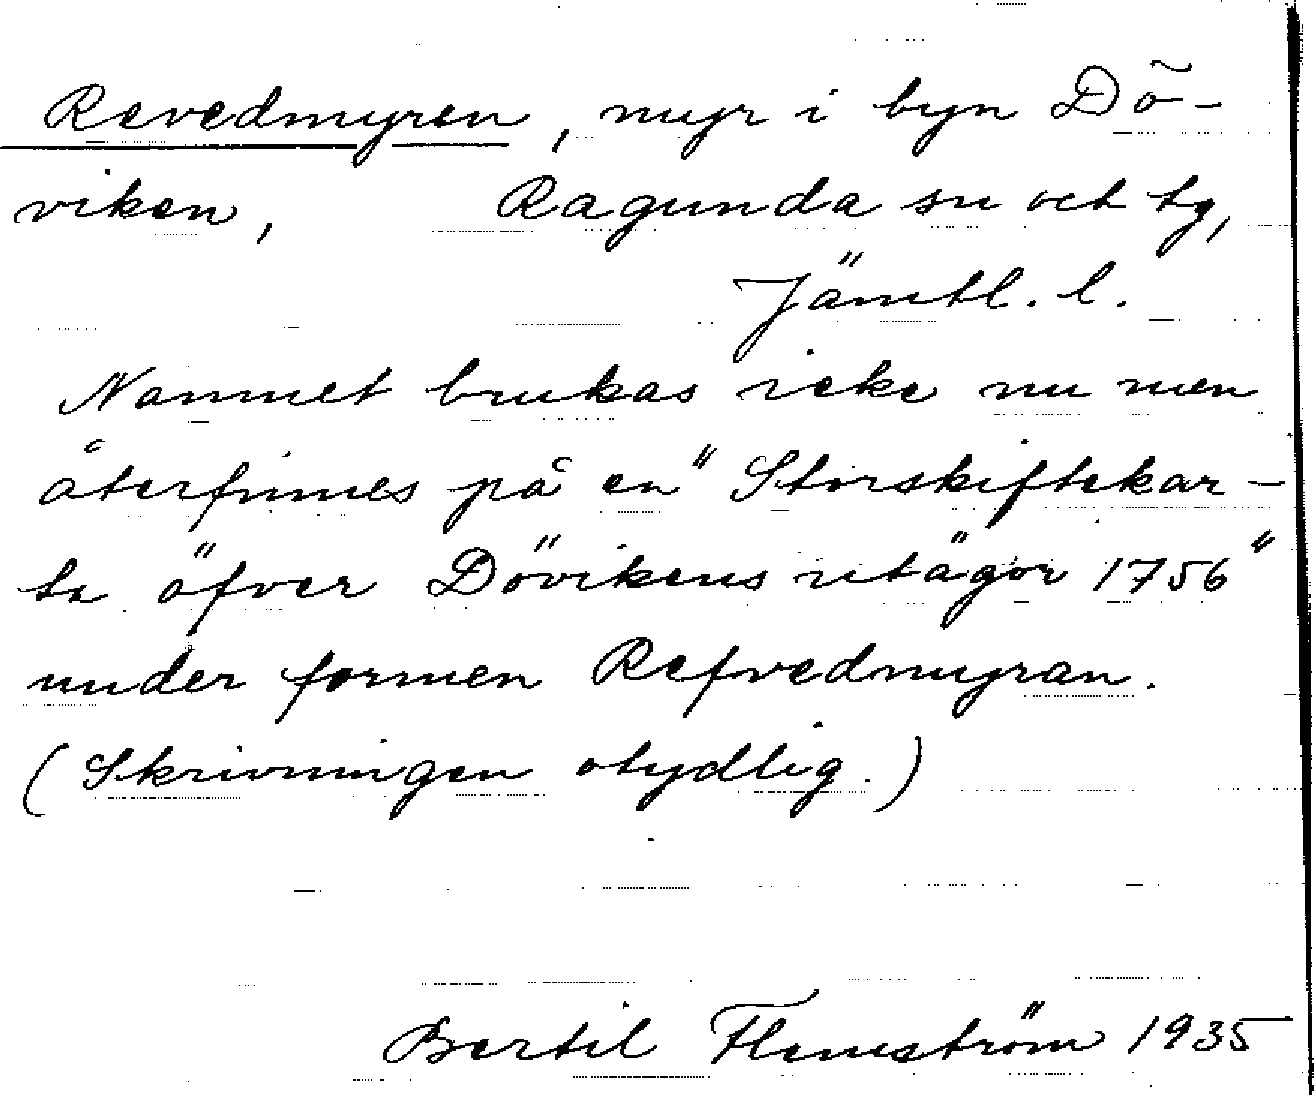 Revedmyren, myr i byn Dö-
viken, Ragunda sn och tg,
Jämtl. l.
Namnet brukas icke nu men
återfinnes på en "Storskiftekar-
ta öfver Dövikens utägor 1756"
under formen Refvedmyran.
(Skrivningen otydlig.)
Bertil Flemström 1935